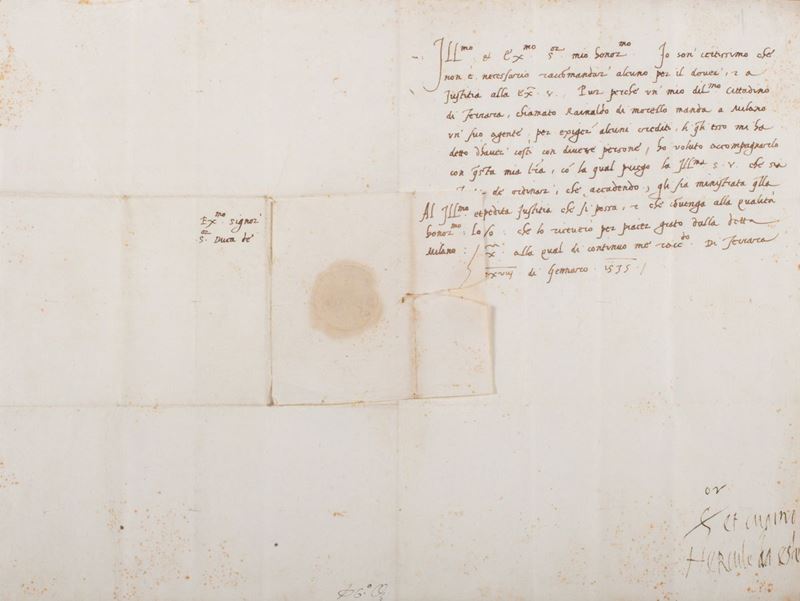 Ill^mo et Ex^mo S^or mio honor^mo Io son' certissimo che
non e necessario raccomandar' alcuno per il dover', e a
Justitia alla Ex. v. Pur perche un' mio dil^mo cittadino
di Ferrara, chiamato Rainaldo di morello manda a Milano
un' suo agente per exiger' alcuni crediti, ch' esso mi ha
detto d'haver' costi con diverse persone, ho voluto accompagnarlo
con questa mia l'ra, co' la qual priego la Ill^ma S. v. che sia
de ordinar', che accadendo, gli sia ministrata quella
expedita Justitia che si possa, e che convenga alla qualità
: che lo ricevero per piacer grato dalla detta
Ex. alla qual di continuo me racc^do Di Ferrara
xxviij di Gennaro 1535
Al Ill^mo et
honor^mo lo S:
Milano:
Ex^mo Signor
S^or Duca de
or
S et
Hercule da este